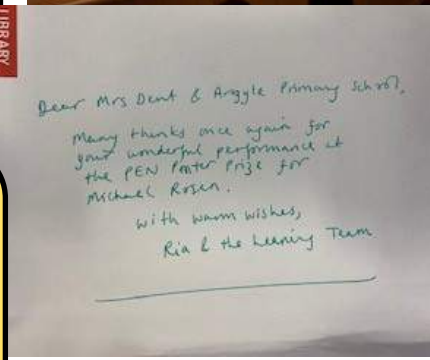 LIBRARY
Dear Mrs Dent & Argyle Primary School,
Many thanks once again for
your wonderful performance at
the PEN Pinter Prize for
Michael Rosen.
With warm wishes,
Ria & the Learning Team